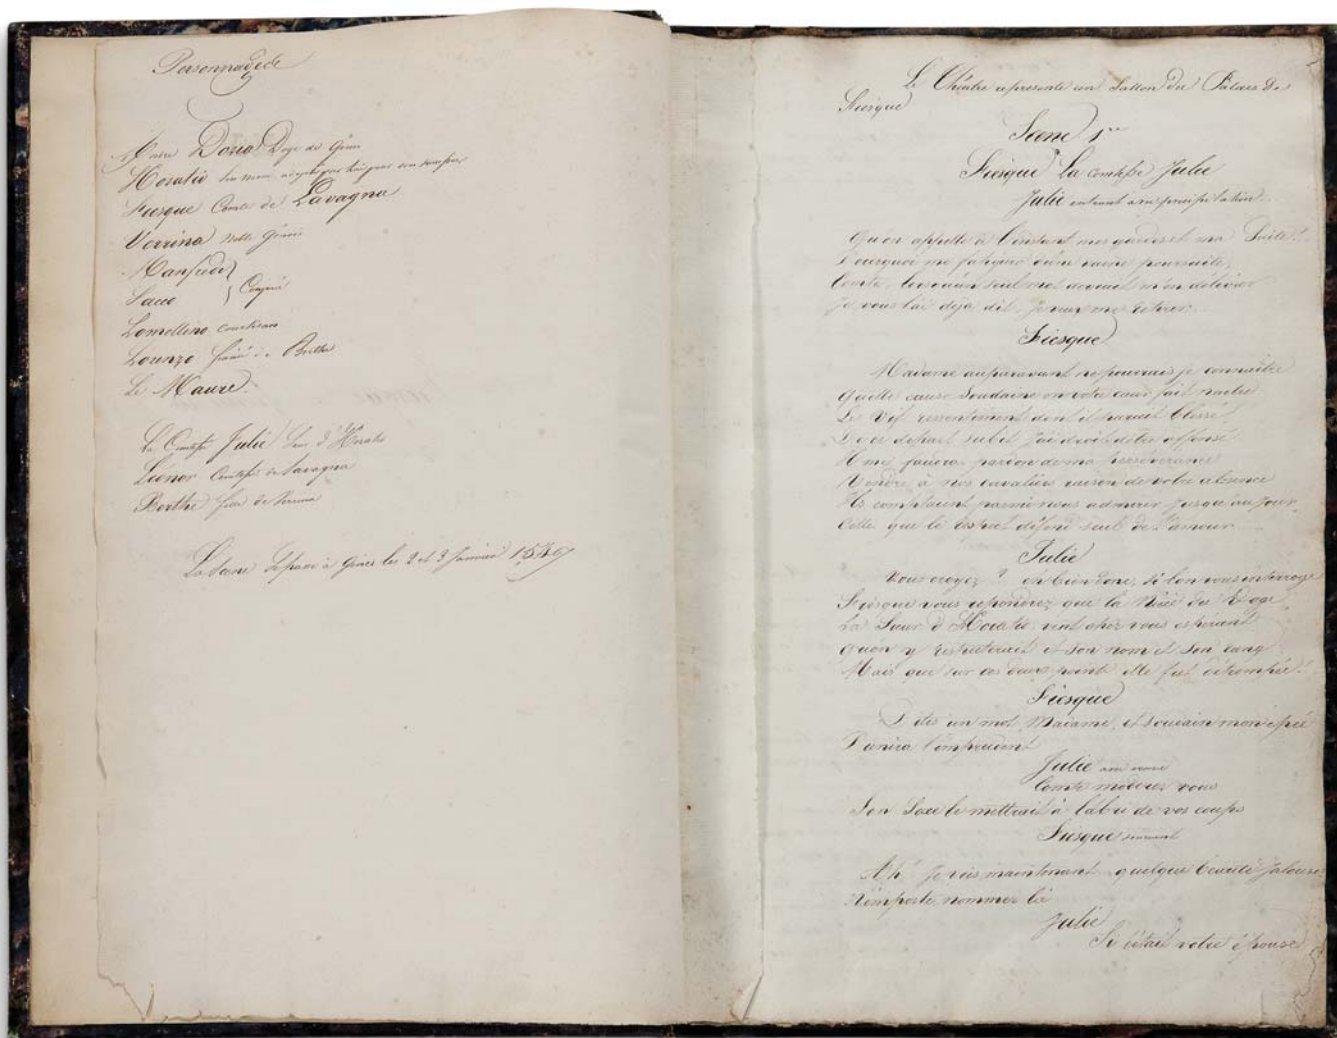 Personnages
André Doria Doge de Gênes
Horatio son neveu
Fiesque Comte de Lavagna
Verrina noble Génois
Manfredi }
Sacco } Conjurés
Lomellino courtisan
Lorenzo fiancé de Berthe
Le Maure
La Comtesse Julie Sœur d'Horatio
Léonor Comtesse de Lavagna
Berthe fille de Verrina
La Scene se passe à Gênes les 2 et 3 Janvier 1547
Le Théatre represente un Sallon du Palais de
Fiesque
Scene 1re
Fiesque La comtesse Julie
Julie entrant avec precipitation
Qu'on appelle à l'instant mes gardes et ma Suite!
Pourquoi me fatiguer d'une vaine poursuite,
Comte, lorsqu'un seul mot devrait m'en délivrer
Je vous l'ai déja dit, je veux me retirer.
Fiesque
Madame auparavant ne pourrais je connaitre
Quelle cause Soudaine en votre cœur fait naitre
Le Vif ressentiment dont il parait blessé
De ce départ subit j'ai droit d'être offensé
Il me faudra pardon de ma perséverance
Rendre à nos cavaliers raison de votre absence
Ils comptaient parmi nous admirer jusqu'au jour
Celle que le respect défend seul de l'amour
Julie
Vous croyez? eh bien donc, si l'on vous interroge
Fiesque vous repondrez que la Nièce du Doge
La Sœur d'Horatio vint chez vous espérant
Qu'on y respecterait et Son nom et Son rang
Mais que sur ces deux points elle fut détrompée!
Fiesque
Dites un mot Madame, et soudain mon épée
Punira l'imprudent
Julie
Comte modérez vous
Son Sexe le mettrait à l'abri de vos coups
Fiesque souriant
Ah! je vois maintenant quelque beauté jalouse
N'importe nommez la
Julie
Si c'était votre épouse